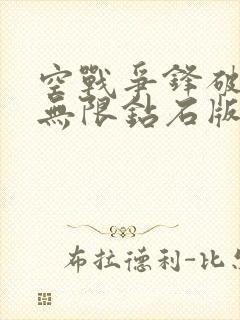 空戰爭鋒破
無限鈷石版
布拉德利-比